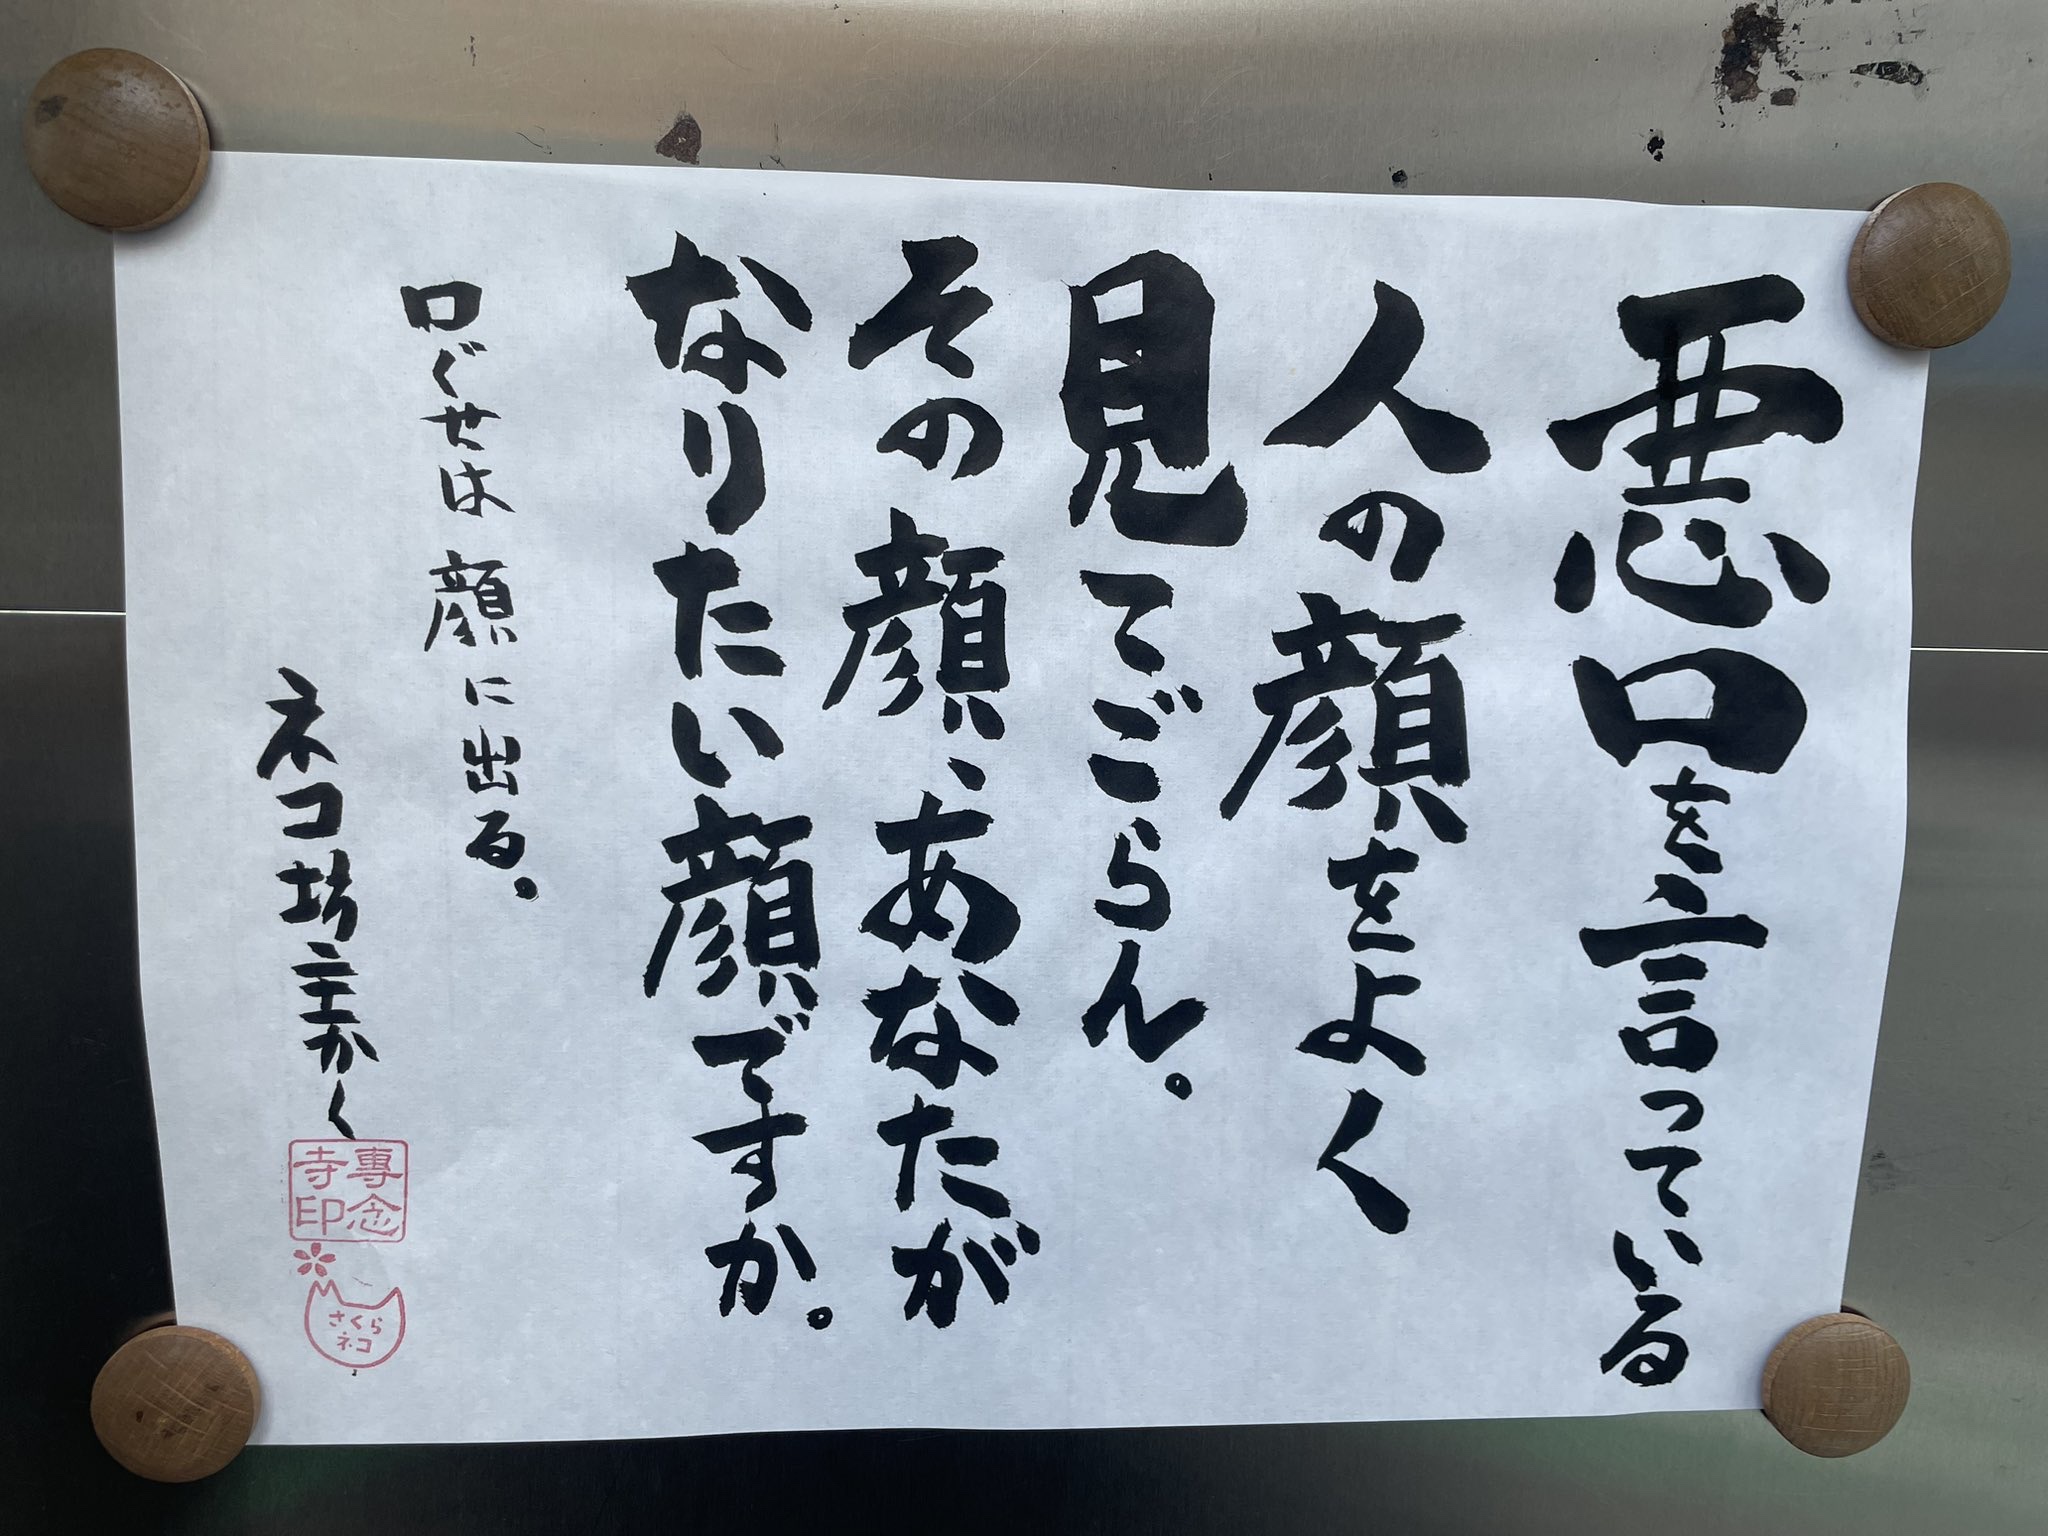 悪口を言っている
人の顔をよく
見てごらん。
その顔、あなたが
なりたい顔ですか。
口ぐせは顔に出る。
ネコ坊主かく
專念
寺印
さくら
ネコ